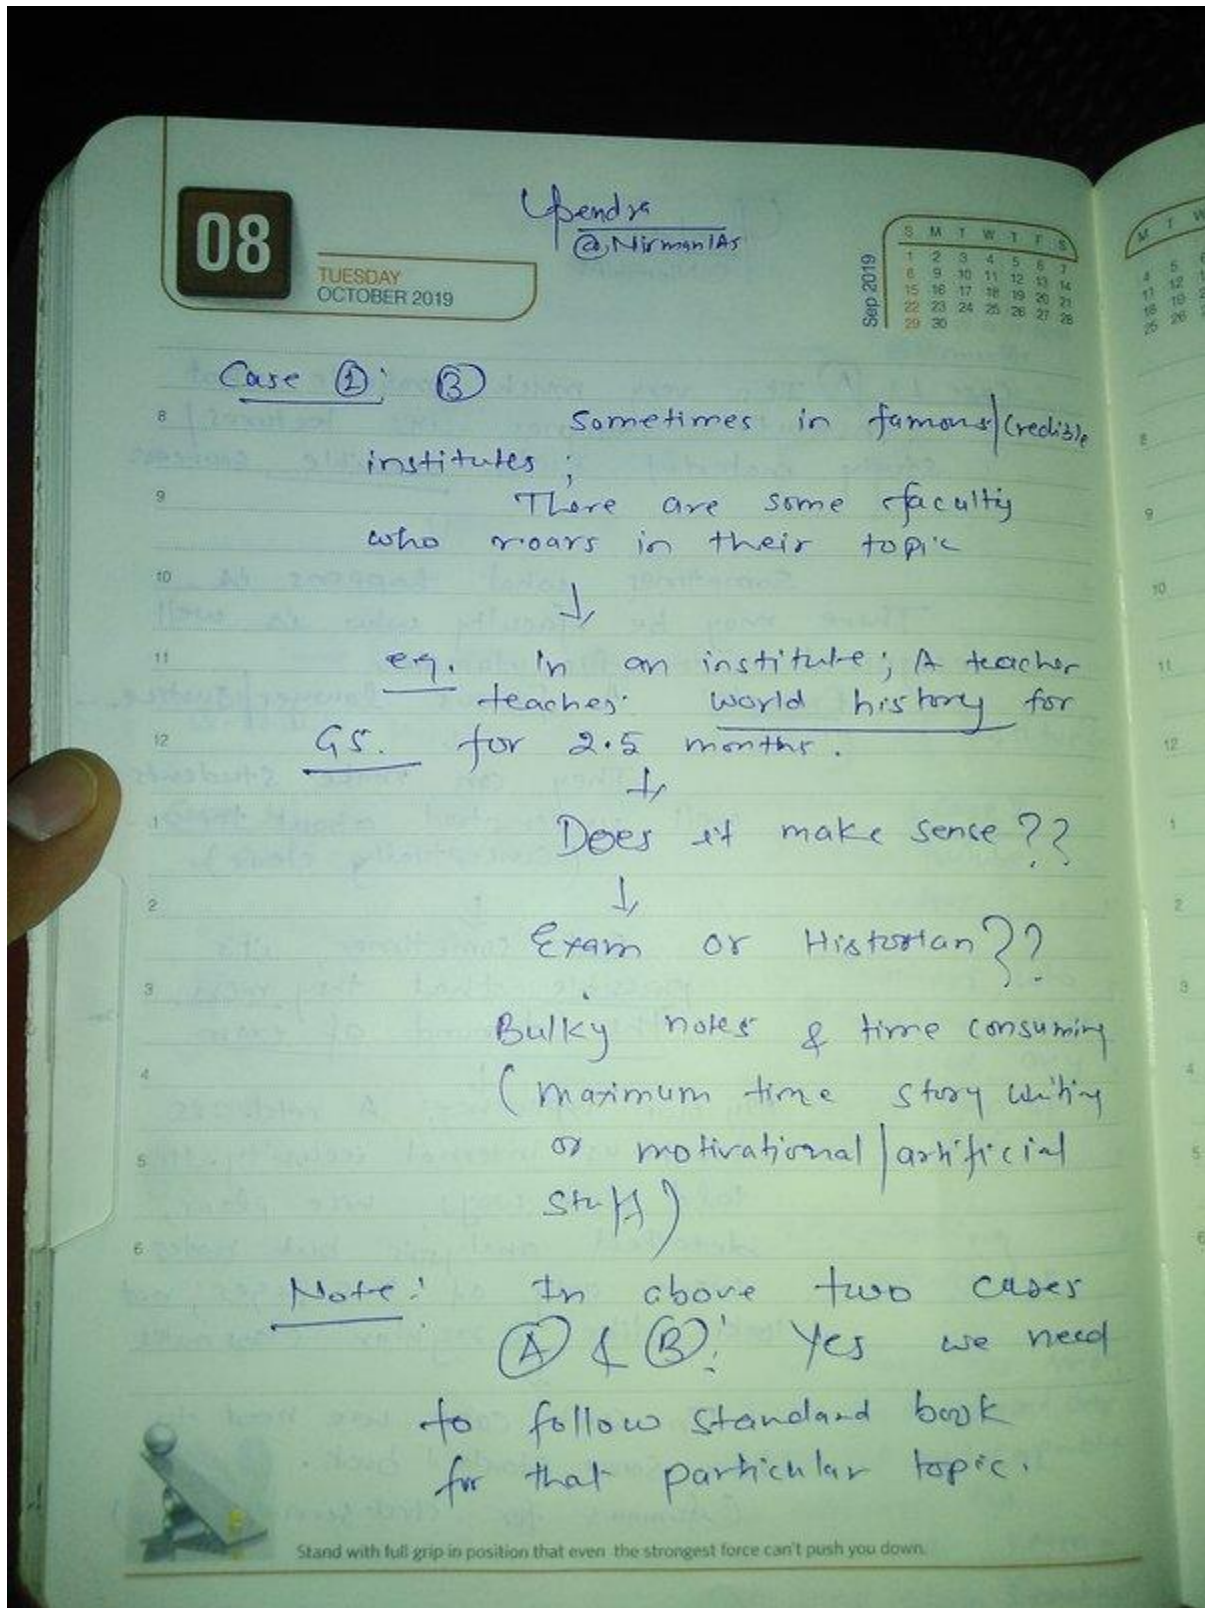 08
TUESDAY
OCTOBER 2019
Upendra
@NirmanIAS
Sep 2019
S M T W T F S
1 2 3 4 5 6 7
8 9 10 11 12 13 14
15 16 17 18 19 20 21
22 23 24 25 26 27 28
29 30
M T W
4 5
11 12
18 19
25 26
Case ①: Ⓑ
8 Sometimes in famous/credible
institutes ;
9 There are some faculty
who roars in their topic
10 ↓
11 e.g. In an institute; A teacher
teaches world history for
12 GS. for 2.5 months.
↓
1 Does it make sense ??
2 ↓
Exam or Historian ??
3
Bulky notes & time consuming
4 (maximum time story writing
5 or motivational/artificial
stuff)
6
Note: In above two cases
Ⓐ & Ⓑ: Yes we need
to follow standard book
for that particular topic.
Stand with full grip in position that even the strongest force can't push you down.
8
9
10
11
12
1
2
3
4
5
6